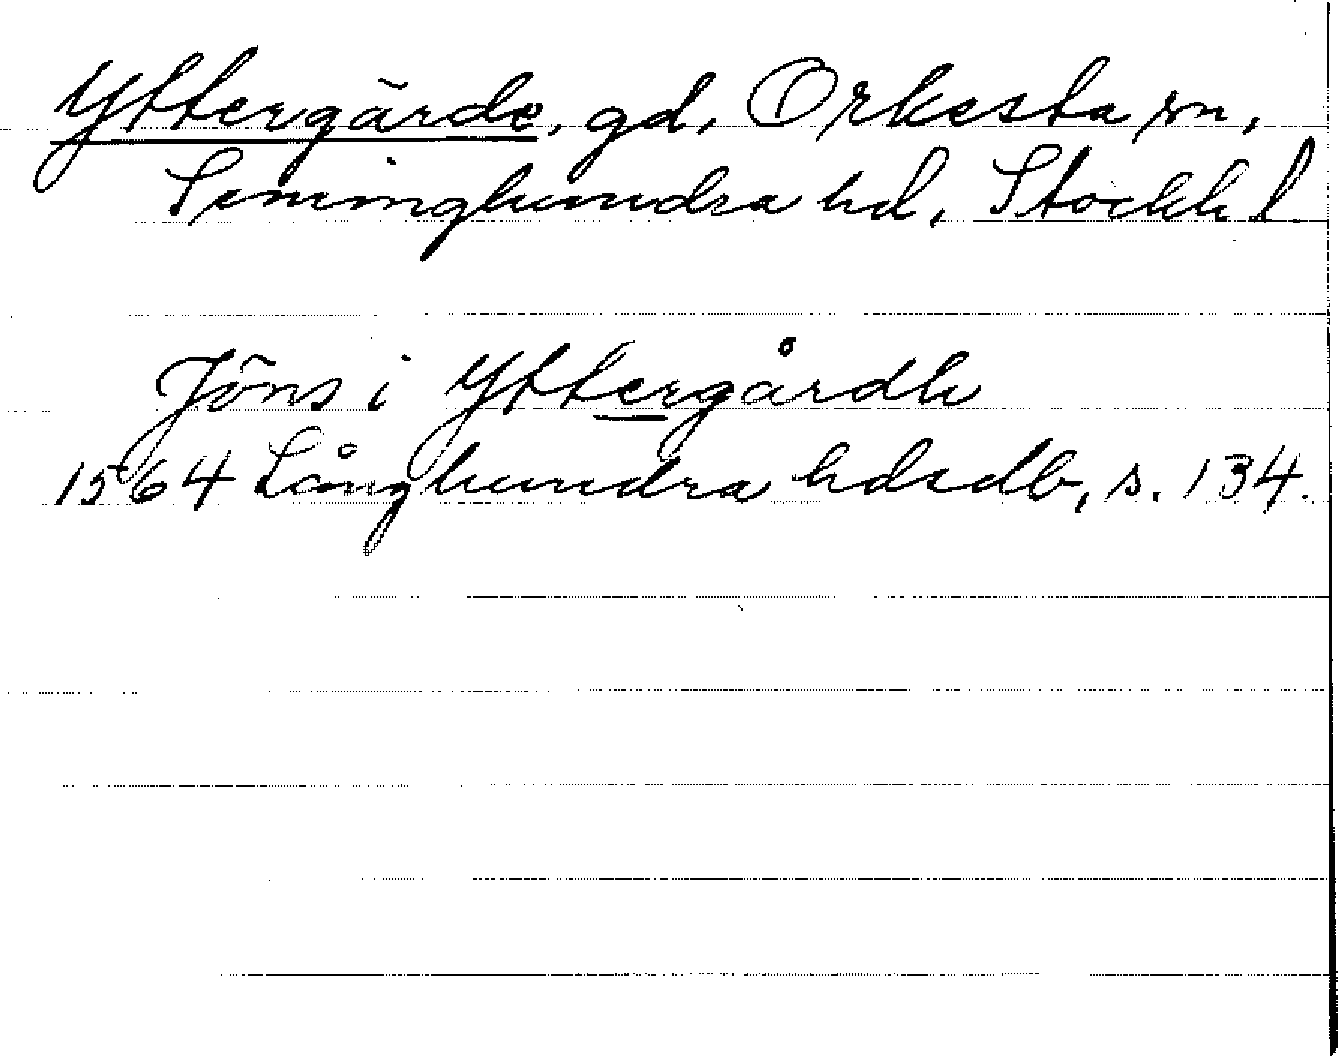 Yttergärde, gd, Orkesta sn,
Seminghundra hd, Stockh l
Jöns i Yttergårdh
1564 Långhundra hdsdb, s. 134.